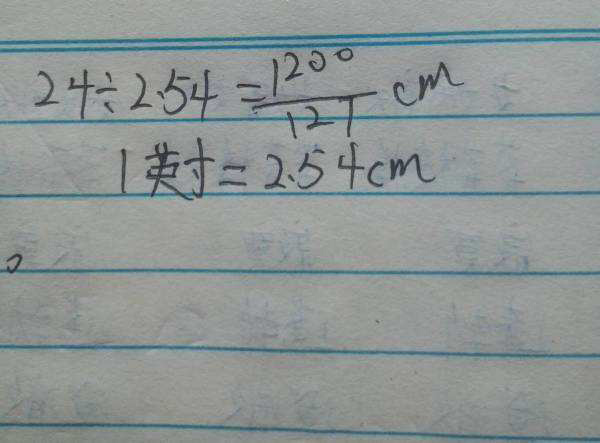 24÷2.54=1200/127 cm
1英寸=2.54cm